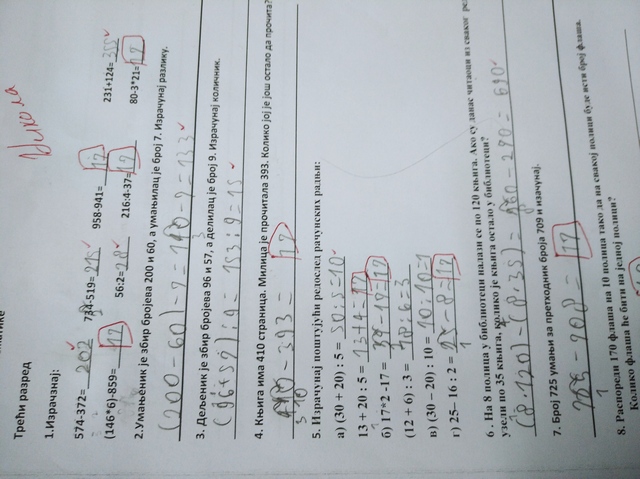 Никола
Трећи разред
1.Израчунај:
574-372= 202 734-519= 215 958-941= 17 231+124= 355
(146*6)-859= 17 56:2= 28 216:4-37= 17 80-3*21= 17
2.Умањеник је збир бројева 200 и 60, а умањилац је број 7. Израчунај разлику.
3. Дељеник је збир бројева 96 и 57, а делилац је број 9. Израчунај количник.
(96+57):9= 153:9=
4. Књига има 410 страница. Милица је прочитала 393. Колико јој је још остало да прочита?
410-393= 17
5. Израчунај поштујући редослед рачунских радњи:
а) (30 + 20) : 5 = 50:5=10
13 + 20 : 5 = 13+4= 17
б) 17*2 -17 = 17
(12 + 6) : .3 = 18:6=3
в) (30 – 20) : 10 = 10:10=1
г) 25– 16 : 2 = 25-8= 17
6 . На 8 полица у библиотеци налази се по 120 књига. Ако су данас читаоци из сваког
узели по 35 књига, колико је књига остало у библиотеци?
(8·120)-(8·35)= 960-280=
7. Број 725 умањи за претходник броја 709 и изачунај.
17
8. Распореди 170 флаша на 10 полица тако да на свакој полици буде исти број флаша.
Колико флаша ће бити на једној полици?